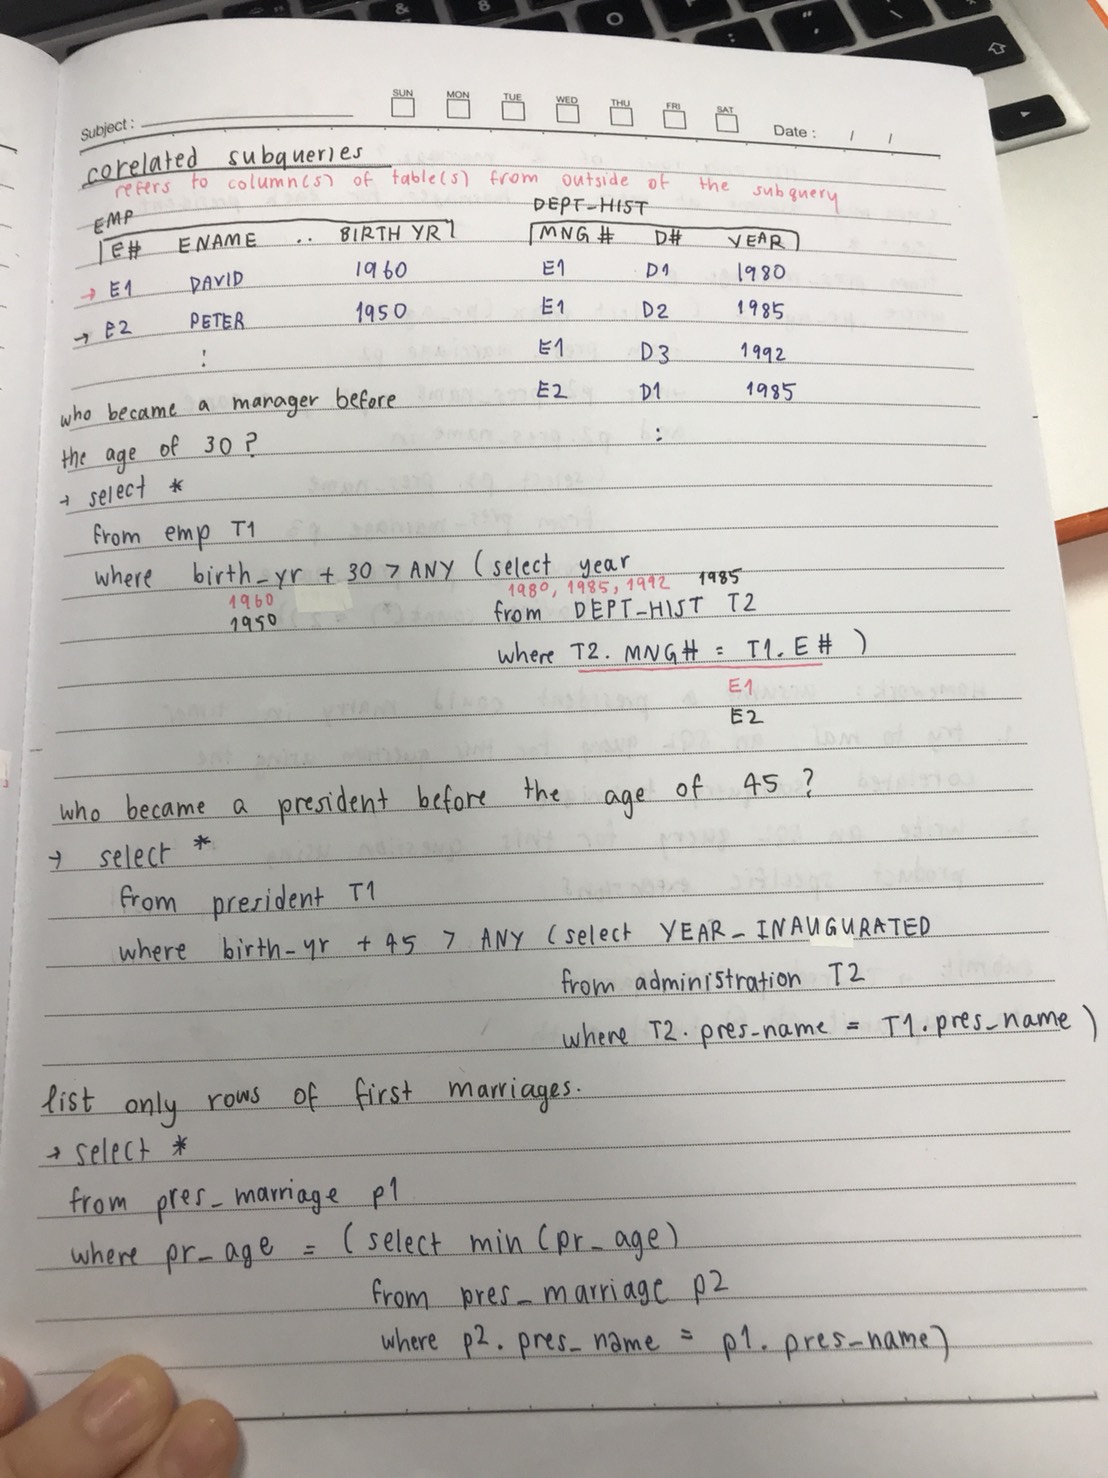 SUN MON TUE WED THU FRI SAT
Subject :
Date : / /
corelated subqueries
refers to column(s) of table(s) from outside of the subquery
EMP
E# ENAME .. BIRTH YR
→ E1 DAVID 1960
→ E2 PETER 1950
:
DEPT-HIST
MNG # D# YEAR
E1 D1 1980
E1 D2 1985
E1 D3 1992
E2 D1 1985
:
who became a manager before
the age of 30?
→ select *
from emp T1
where birth_yr + 30 > ANY ( select year
1960 1980, 1985, 1992 1985
1950
from DEPT-HIST T2
where T2. MNG# = T1. E# )
E1
E2
who became a president before the age of 45 ?
→ select *
from president T1
where birth-yr + 45 > ANY ( select YEAR_INAUGURATED
from administration T2
where T2. pres-name = T1. pres_name )
list only rows of first marriages.
→ select *
from pres_marriage p1
where pr_age = ( select min (pr_age)
from pres_marriage p2
where p2. pres_name = p1. pres-name)